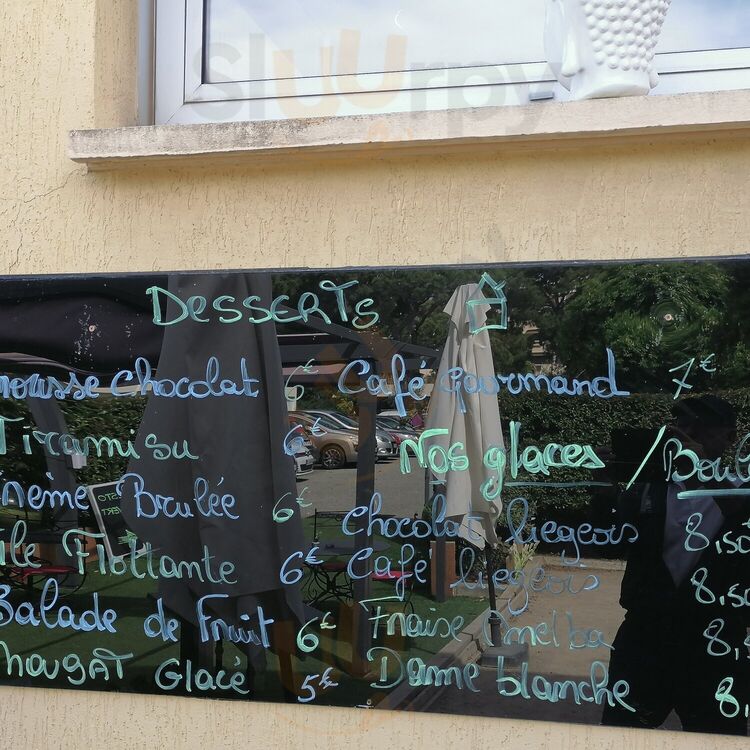 sluurpy
Desserts
mousse chocolat 6€ Café gourmand 7€
Tiramisu 6€ Nos glaces / Boul
rème Brulée 6€ Chocolat liegeois 8,50
ile Flottante 6€ Café liegeois 8,50
Balade de Fruit 6€ Fraise melba 8,
nougat Glacé 5€ Dame blanche 8,